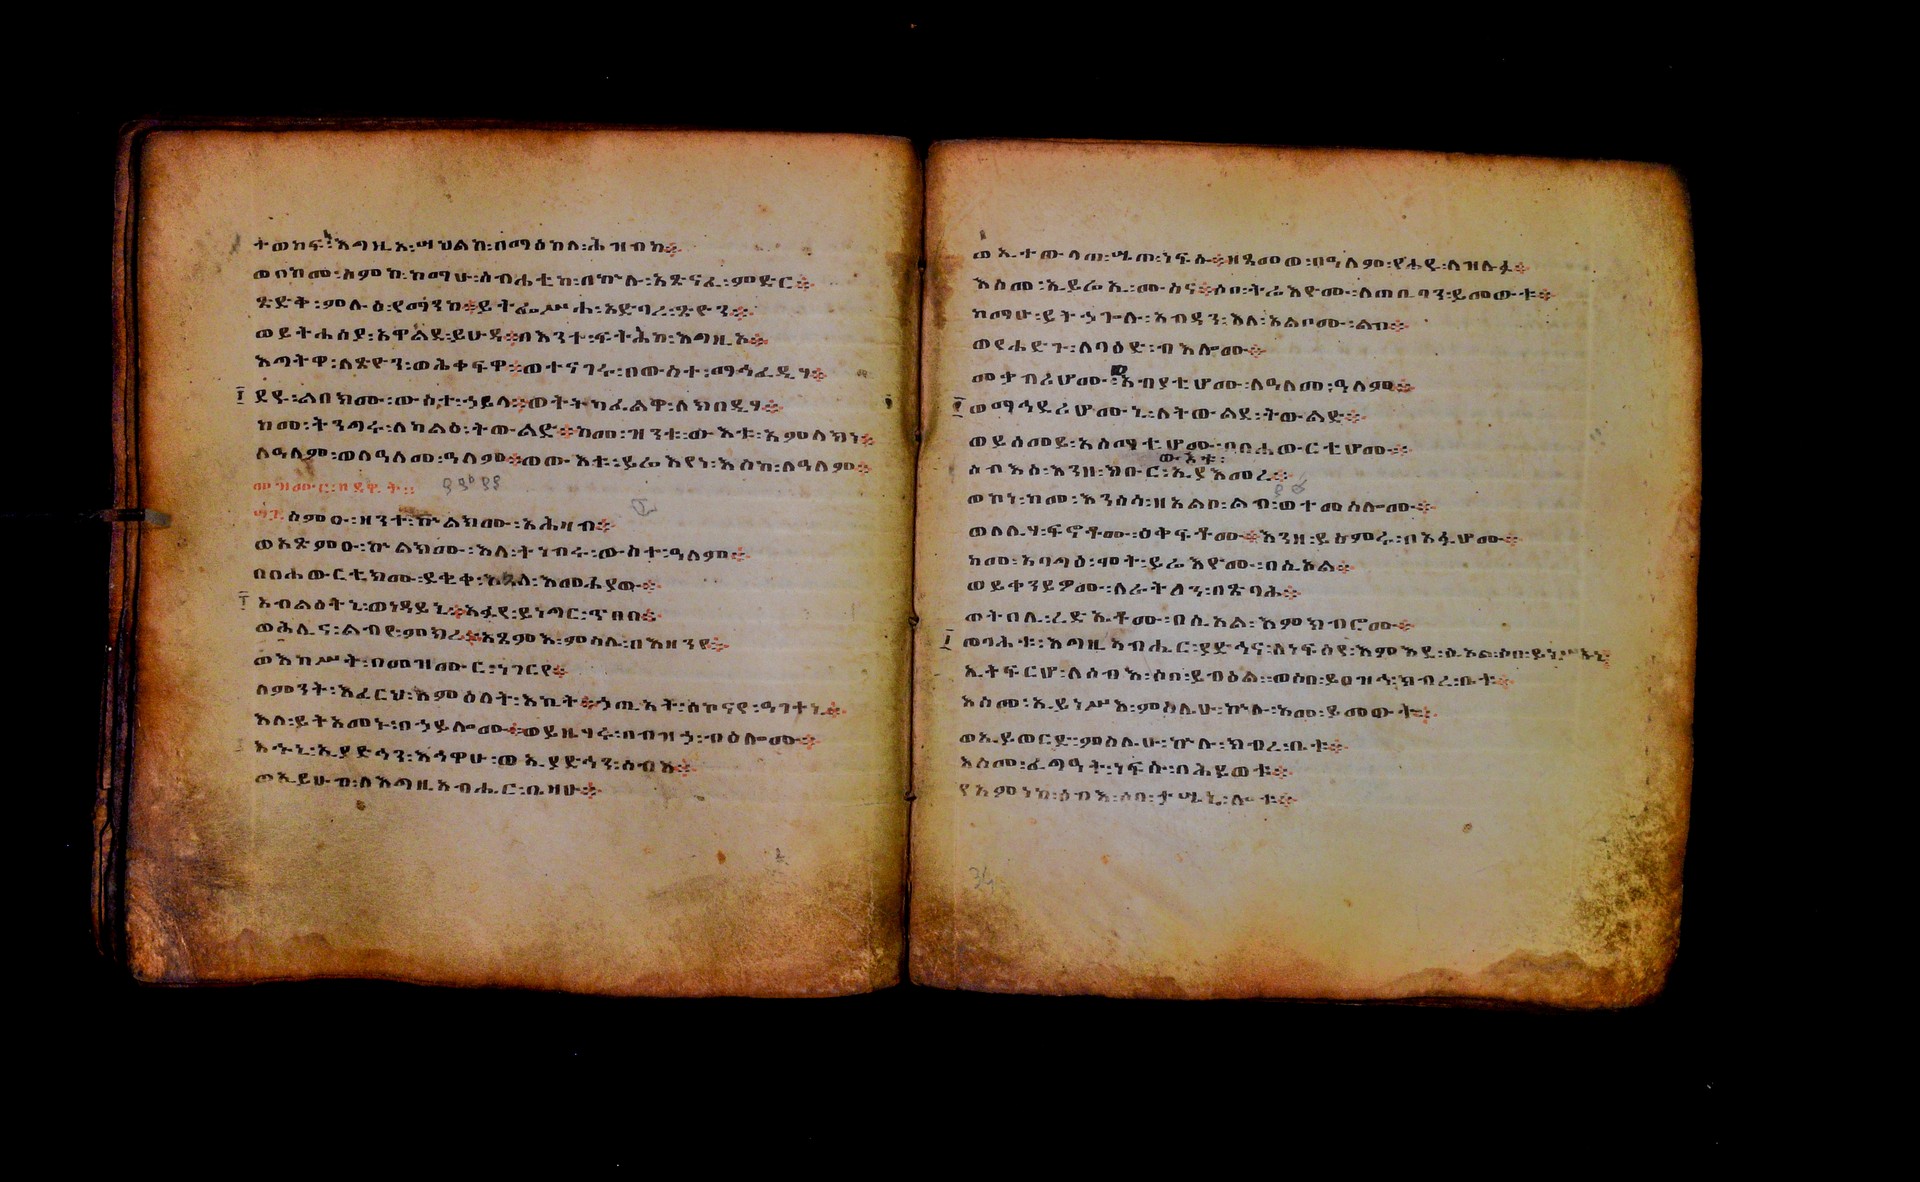 ተወከፍነ፡እግዚኦ፡ሣህልከ፡በማዕከለ፡ሕዝብከ፨
ወበከመ፡ስምከ፡ከማሁ፡ስብሐቲከ፡በኵሉ፡አጽናፈ፡ምድር፨
ጽድቅ፡ምሉዕ፡የማንከ፨ይትፌሥሐ፡አድባረ፡ጽዮን፨
ወይትሐሠያ፡አዋልደ፡ይሁዳ፨በእንተ፡ፍትሕከ፡እግዚኦ፨
ዕግትዋ፡ለጽዮን፡ወሕቀፍዋ፨ወተናገሩ፡በውስተ፡ማኅፈዲሃ፨
፲ ደዩ፡ልበክሙ፡ውስተ፡ኃይላ፨ወትትካፈልዋ፡ለክበዲሃ፨
ከመ፡ትንግሩ፡ለካልዕ፡ትውልድ፨ከመ፡ዝንቱ፡ውእቱ፡አምላክነ፨
ለዓለም፡ወለዓለመ፡ዓለም፨ወውእቱ፡ይሬእየነ፡እስከ፡ለዓለም፨
መዝሙር፡በዳዊት፡፡
ስምዑ፡ዘንተ፡ኵልክሙ፡አሕዛብ፨
ወአጽምዑ፡ኵልክሙ፡እለ፡ትነብሩ፡ውስተ፡ዓለም፨
በበሐውርቲክሙ፡ደቂቀ፡እጓለ፡እመሕያው፨
፲ አብዕልትኒ፡ወነዳይኒ፨አፉየ፡ይነግር፡ጥበበ፨
ወሕሊና፡ልብየ፡ምክረ፨አጸምእ፡ምሳሌ፡በእዝንየ፨
ወእከሥት፡በመዝሙር፡ነገርየ፨
ለምንት፡እፈርህ፡እምዕለት፡እኪት፨ኃጢአት፡ሰኮናየ፡ዓገተኒ፨
እለ፡ይትአመኑ፡በኃይሎሙ፨ወይዜሃሩ፡በብዝኃ፡ብዕሎሙ፨
እኁኒ፡ኢያድኅን፡እኅዋሁ፡ወኢያድኅን፡ሰብእ፨
ወኢይሁብ፡ለእግዚአብሔር፡ቤዛሁ፨
ወኢተውላጠ፡ሤጠ፡ነፍሱ፨ዘጻመወ፡በዓለም፡የሐዩ፡ለዝሉፉ፨
እስመ፡ኢይሬኢ፡ሙስና፨ሶበ፡ትሬእዮሙ፡ለጠቢባን፡ይመውቱ፨
ከማሁ፡ይትኃጐሉ፡አብዳን፡እለ፡አልቦሙ፡ልበ፨
ወየሐድጉ፡ለባዕድ፡ብእሎሙ፨
መቃብሪሆሙ፡አብያቲሆሙ፡ለዓለመ፡ዓለም፨
ወማኅደሪሆሙኒ፡ለትውልደ፡ትውልድ፨
ወይሰመይ፡አስማቲሆሙ፡በበሐውርቲሆሙ፨
ውእቱ፡
ሰብእሰ፡እንዘ፡ክቡር፡ኢያእመረ፨
ወኮነ፡ከመ፡እንስሳ፡ዘአልቦ፡ልብ፡ወተመሰሎሙ፨
ወለሊሃ፡ፍኖቶሙ፡ዕቅፍቶሙ፨እንዘ፡ይሠምሩ፡በአፉሆሙ፨
ከመ፡አባግዕ፡ሞት፡ይሬእዮሙ፡በሲኦል፨
ወይቀንይዎሙ፡ለራትዓን፡በጽባሕ፨
ወትበሊ፡ረድኤቶሙ፡በሲኦል፡እምክብሮሙ፨
፲ ወባሕቱ፡እግዚአብሔር፡ያድኅና፡ለነፍስየ፡እምእደ፡ሲኦል፡ሶበ፡ይነሥኡኒ
ኢትፍርሆ፡ለሰብእ፡ሶበ፡ይብዕል፡ወሶበ፡ይበዝኅ፡ክብረ፡ቤቱ፨
እስመ፡ኢይነሥእ፡ምስሌሁ፡ኵሎ፡አመ፡ይመውት፨
ወኢይወርድ፡ምስሌሁ፡ኵሉ፡ክብረ፡ቤቱ፨
እስመ፡ፈግዓት፡ነፍሱ፡በሕይወቱ፨
የአምነከ፡ሰብእ፡ሶበ፡ታሤኒ፡ሎቱ፨
34